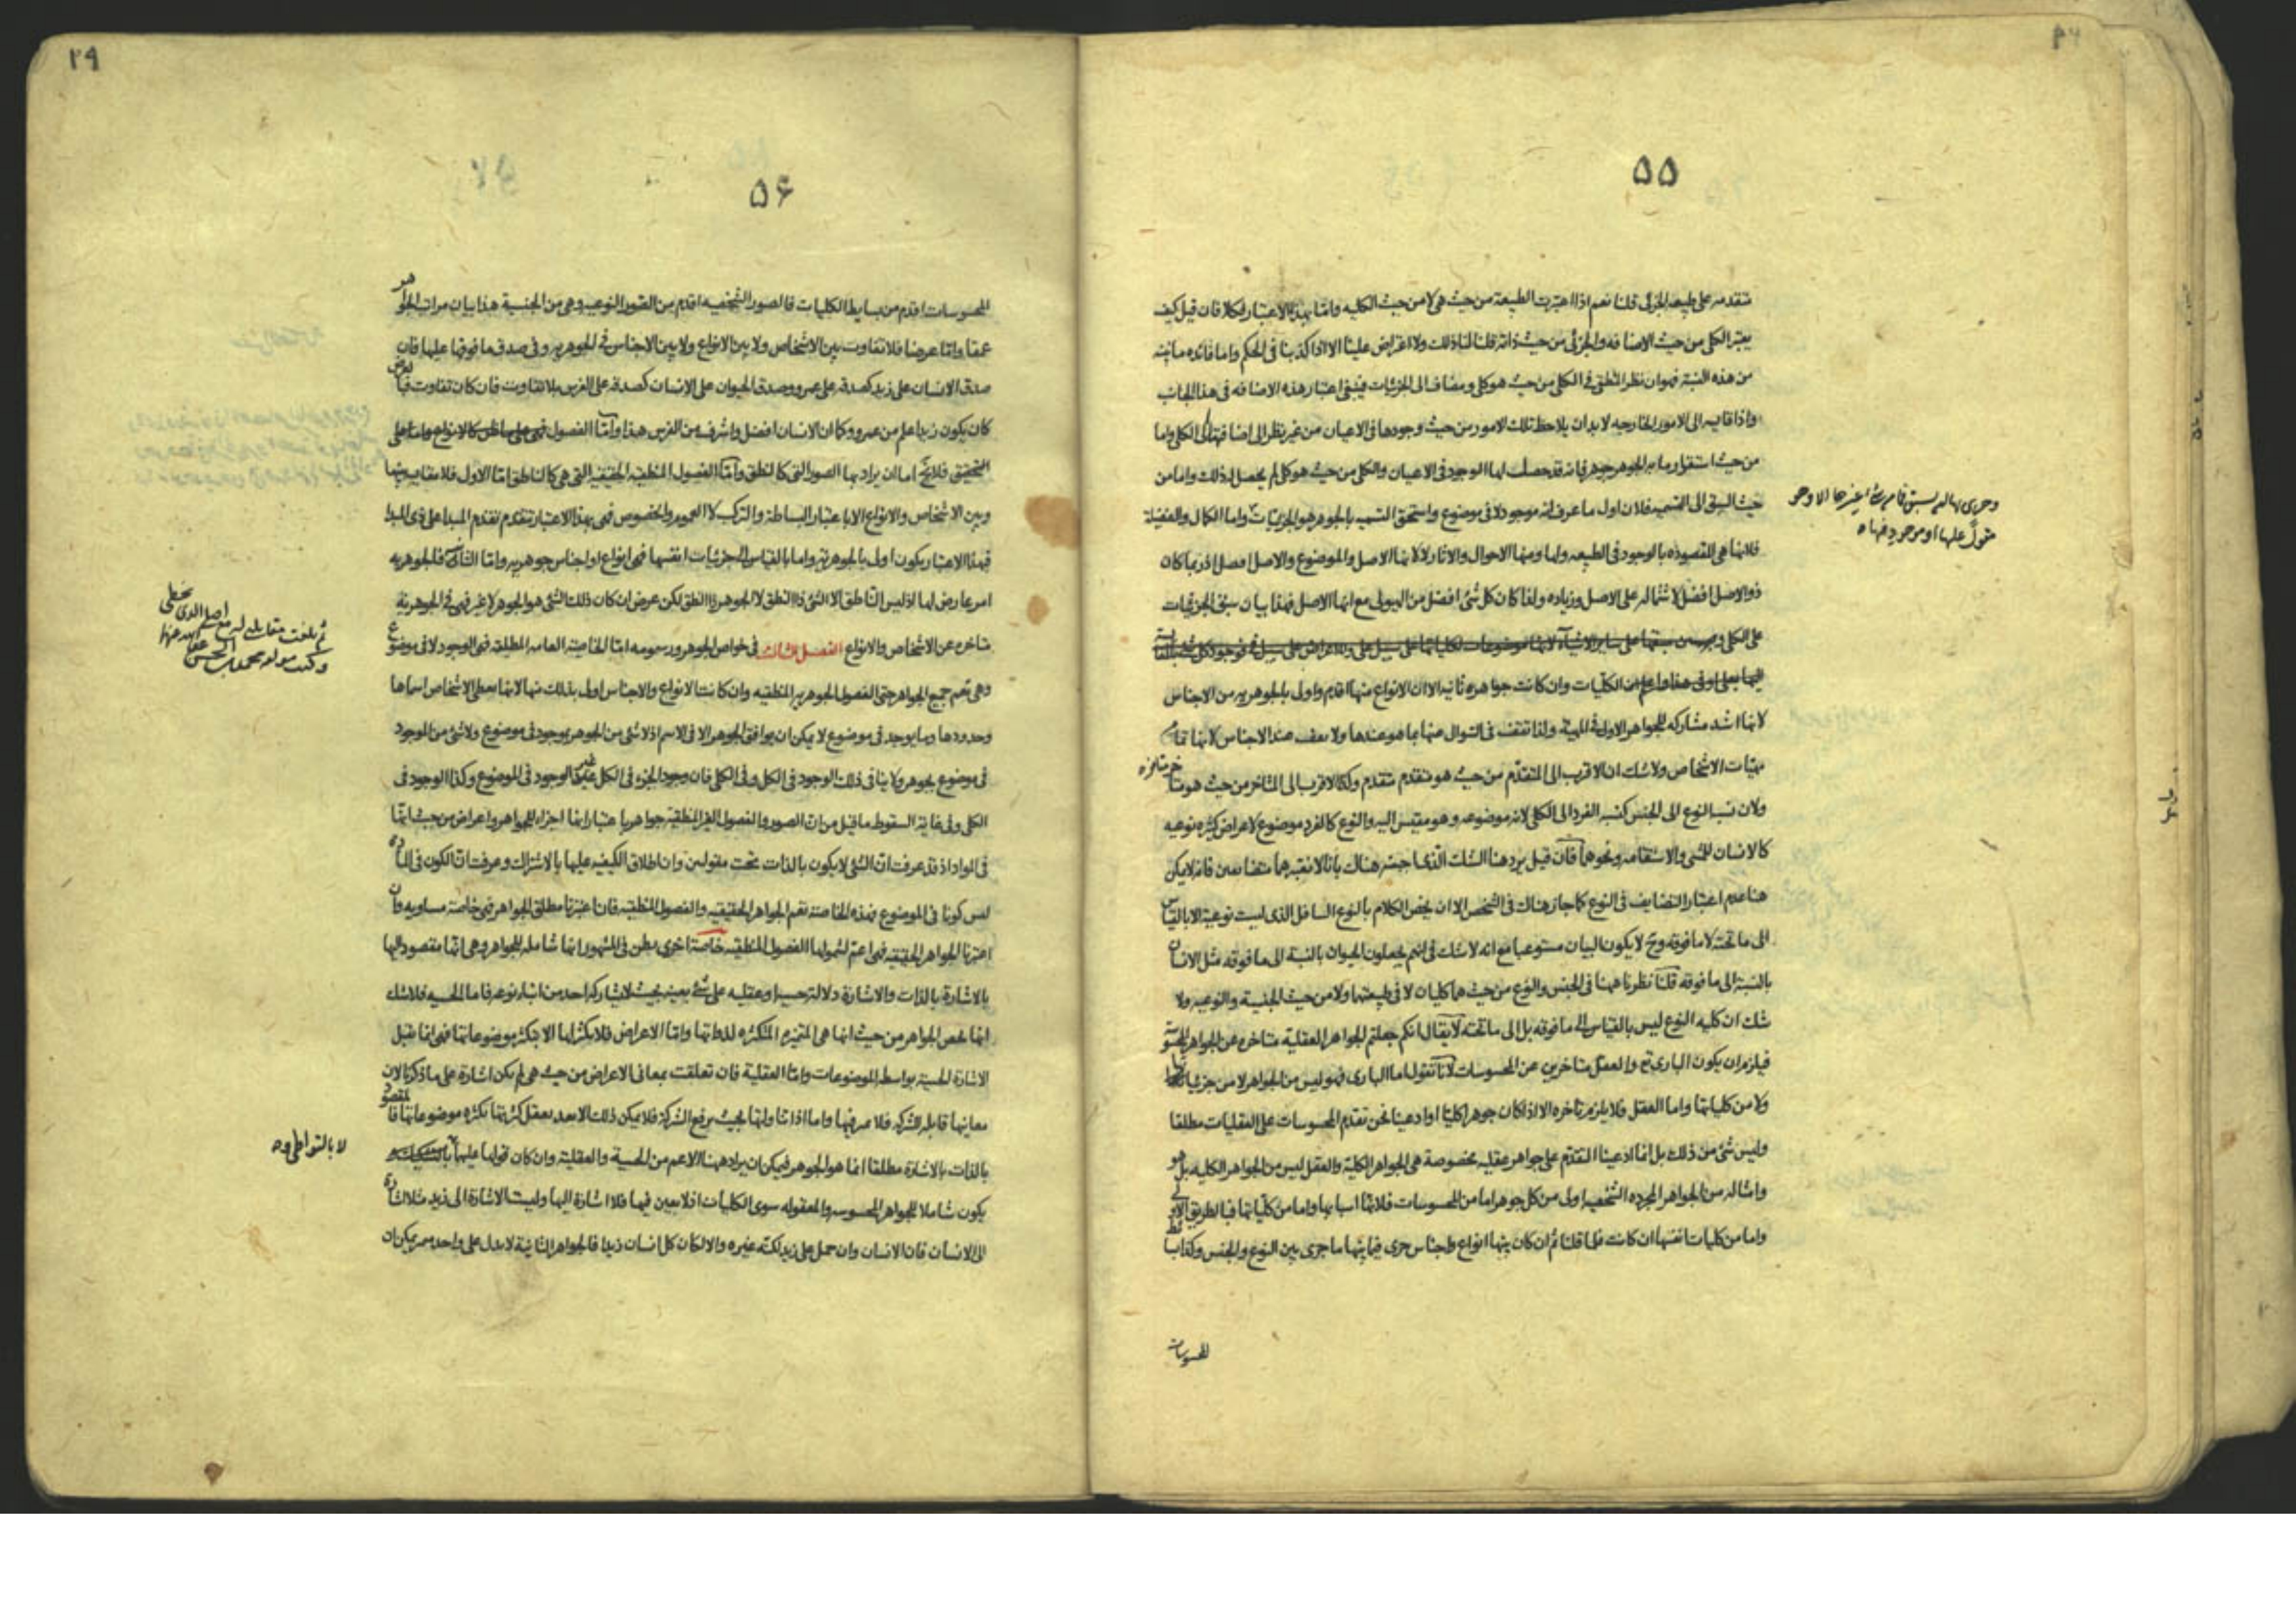 ٥٥
متقدمه على طبيعه الجزئى قلنا نعم اذا اعتبرت الطبيعة من حيث هى لا من حيث الكليه واما بهذا الاعتبار فكلا فان قيل كيف
يعتبر الكلى من حيث الاضافه والجزئى من حيث ذاته قلنا لنا ذلك ولا اعتراض علينا الا اذا كذبنا فى الحكم واما فائده
من هذه النسبة فهو ان نظر المنطقى فى الكلى من حيث هو كلى ومضاف الى الجزئيات فينبغى اعتبار هذه الاضافه فى هذا الجانب
واذا قايسه الى الامور الخارجيه لا بد ان يلاحظ تلك الامور من حيث وجودها فى الاعيان من غير نظر الى اضافتها الى الكلى واما
من حيث استقرار ما به الجوهر جوهر فانه قد حصلت لها الوجود فى الاعيان والكلى من حيث هو كلى لم يحصل له ذلك واما من
حيث السبق الى التسميه فلان اول ما عرف انه موجود لا فى موضوع واستحق التسميه بالجوهر هو الجزئيات واما الكمال والفضيلة
فلانها هى المقصوده بالوجود فى الطبيعه ولها ومنها الاحوال والاثار لا لانها الاصل والموضوع والاصل افضل اذ ربما كان
ذو الاصل افضل لاشتماله على الاصل وزياده ولذا كان كل شئ افضل من الهيولى مع انها الاصل فهذا بيان سبق الجزئيات
على الكلى
الكليات وان كانت جواهره ثانيه الا ان الانواع منها اقدم واولى بالجوهريه من الاجناس
لانها اشد مشاركه للجواهر الاولى فى المهية ولذا تقف فى السوال عنها بما هو عندها ولا يقف عند الاجناس لانها تمام
مهيات الاشخاص ولا شك ان الاقرب الى المتقدم من حيث هو متقدم متقدم وكذا الاقرب الى المتاخر من حيث هو متاخر متاخر
ولان نسبه النوع الى الجنس كنسبه الفرد الى الكلى لانه موضوعه وهو مقيس اليه والنوع كالفرد موضوع لاعراض كثيره نوعيه
كالانسان للمشى والاستقامه ونحوهما فان قيل يرد هنا الشك الذى اجبته هناك بانا لا نعتبرهما متضايفين فانه لا يمكن
هنا عدم اعتبار التضايف فى النوع كما جاز هناك فى الشخص الا ان يخص الكلام بالنوع السافل الذى ليست نوعيته الا بالقياس
الى ما تحته لا ما فوقه وح لا يكون البيان مستوعبا مع انه لا شك فى انهم يجعلون الحيوان بالنسبة الى ما فوقه مثل الانسان
بالنسبة الى ما فوقه قلنا نظرنا ههنا فى الجنس والنوع من حيث هما كليان لا فى طبيعتهما ولا من حيث الجنسية والنوعيه ولا
شك ان كليه النوع ليس بالقياس الى ما فوقه بل الى ما تحته لا يقال انكم جعلتم الجواهر العقلية متاخره عن الجواهر الحسية
فيلزم ان يكون البارى تع والعقل متاخرين عن المحسوسات لانا نقول اما البارى فهو ليس من الجواهر لا من جزئياتها
ولا من كلياتها واما العقل فلا يلزم تاخره الا اذا كان جوهرا كليا او ادعينا نحن تقدم المحسوسات على العقليات مطلقا
وليس شئ من ذلك بل انما ادعينا التقدم على جواهر عقليه مخصوصة هى الجواهر الكلية والعقل ليس من الجواهر الكليه بل هو
وامثاله من الجواهر المجرده الشخصيه اولى من كل جوهر اما من المحسوسات فلانها اسبابها واما من كلياتها فبالطريق الاولى
واما من كليات نفسها ان كانت فلما قلنا ثم ان كان بينها انواع واجناس جرى فيما بينها ما جرى بين النوع والجنس وكذا بسائط
المحسوسات
٥۶
٢٩
المحسوسات اقدم من بسايط الكليات فالصور الشخصيه اقدم من الصور النوعيه وهى من الجنسية هذا بيان مراتب الجواهر
عمقا واما عرضا فلا تفاوت بين الاشخاص ولا بين الانواع ولا بين الاجناس فى الجوهريه وفى صدق ما فوقها عليها فان
صدق الانسان على زيد كصدقه على عمرو وصدق الحيوان على الانسان كصدقه على الفرس بلا تفاوت فان كان تفاوت فبالعرض
كان يكون زيد اعلم من عمرو وكما ان الانسان افضل واشرف من الفرس هذا واما الفصول
التحقيق فلا يخ اما ان يراد بها الصور التى كالنطق واما الفصول المنطقيه الحقيقيه التى هى كالناطق اما الاول فلا مقايسه بينها
وبين الاشخاص والانواع الا باعتبار البساطة والتركب لا العموم والخصوص فهى بهذا الاعتبار تتقدم تقدم المبدا على ذى المبدا
فبهذا الاعتبار يكون اولى بالجوهرية واما بالقياس الى جزئيات انفسها فهى انواع او اجناس جوهريه واما الثانى فالجوهريه
امر عارض لها اذ ليس الناطق الا الشئ ذا النطق لا الجوهر ذا النطق لكن عرض ان كان ذلك الشئ هو الجوهر لا غير فهى فى الجوهرية
متاخره عن الاشخاص والانواع الفصل الثالث فى خواص الجوهر ورسومه اما الخاصية العامه المطلقه فهى الوجود لا فى موضوع
وهى تعم جميع الجواهر حتى الفصول الجوهريه المنطقيه وان كانت الانواع والاجناس اولى بذلك منها لانها يعطى الاشخاص اسماها
وحدودها وما يوجد فى موضوع لا يمكن ان يوافق الجوهر الا فى الاسم اذ لا شئ من الجوهر بموجود فى موضوع ولا شئ من الموجود
فى موضوع بجوهر ولا ينافى ذلك الوجود فى الكل وفى الكلى فان وجود الجزء فى الكل غير الوجود فى الموضوع وكذا الوجود فى
الكلى وفى غاية السقوط ما قيل من ان الصور والفصول الغير المنطقية جواهر باعتبار انها اجزاء الجواهر واعراض من حيث انها
فى المواد اذ قد عرفت ان الشئ لا يكون بالذات تحت مقولتين وان اطلاق الكيفيه عليها بالاشتراك وعرفت ان الكون فى المادة
ليس كونا فى الموضوع فهذه الخاصة تعم الجواهر الحقيقيه والفصول المنطقيه فان اعتبرنا مطلق الجواهر فهى خاصة مساويه وان
اعتبرنا الجواهر الحقيقيه فهى اعم لشمولها الفصول المنطقيه خاصة اخرى يظن فى المشهور انها شامله للجواهر وهى انها مقصود اليها
بالاشارة بالذات والاشارة دلالة حسيه او عقليه على شئ بعينه بحيث لا يشاركه احد من ابناء نوعه فاما الحسيه فلا شك
انها تخص الجواهر من حيث انها هى المتحيزه المتكثره لذواتها واما الاعراض فلا تكثر لها الا بتكثر موضوعاتها فهى انما تقبل
الاشارة الحسية بواسطه الموضوعات واما العقلية فان تعلقت بمعانى الاعراض من حيث هى لم يكن اشارة على ما ذكرنا لان
معانيها قابله للشركه فلا فيها واما اذا تناولتها بحيث يرفع الشركة فلا يمكن ذلك الا بعد تعقل كثرتها بكثره موضوعاتها فالمقصود
بالذات بالاشارة مطلقا انما هو الجوهر فيمكن ان يراد ههنا الاعم من الحسية والعقلية وان كان قولها عليهما بالتشكيك
يكون شاملا للجواهر المحسوسه والمعقوله سوى الكليات اذ لا تعين فيها فلا اشارة اليها وليست الاشارة الى زيد مثلا اشارة
الى الانسان فان الانسان وان حمل على زيد لكنه غيره والا لكان كل انسان زيدا فالجواهر الثانية لا يدل على واحد
لا بالتواطى